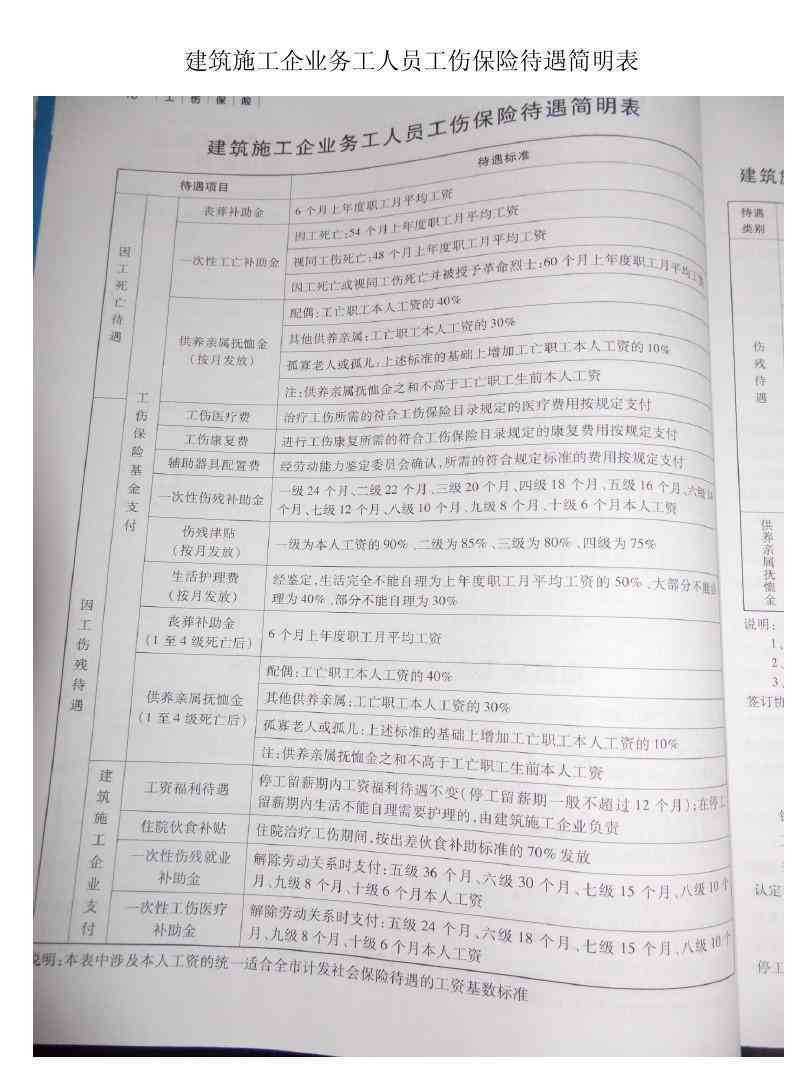 建筑施工企业务工人员工伤保险待遇简明表
工 伤 保 险
建筑施工企业务工人员工伤保险待遇简明表
待遇项目
待遇标准
因工死亡待遇
工伤保险基金支付
丧葬补助金
6个月上年度职工月平均工资
一次性工亡补助金
因工死亡:54个月上年度职工月平均工资
视同工伤死亡:48个月上年度职工月平均工资
因工死亡或视同工伤死亡并被授予革命烈士:60个月上年度职工月平均工资
供养亲属抚恤金
(按月发放)
配偶:工亡职工本人工资的40%
其他供养亲属:工亡职工本人工资的30%
孤寡老人或孤儿:上述标准的基础上增加工亡职工本人工资的10%
注:供养亲属抚恤金之和不高于工亡职工生前本人工资
因工伤残待遇
工伤医疗费
治疗工伤所需的符合工伤保险目录规定的医疗费用按规定支付
工伤康复费
进行工伤康复所需的符合工伤保险目录规定的康复费用按规定支付
辅助器具配置费
经劳动能力鉴定委员会确认,所需的符合规定标准的费用按规定支付
一次性伤残补助金
一级24个月、二级22个月、三级20个月、四级18个月、五级16个月、六级14
个月、七级12个月、八级10个月、九级8个月、十级6个月本人工资
伤残津贴
(按月发放)
一级为本人工资的90%、二级为85%、三级为80%、四级为75%
生活护理费
(按月发放)
经鉴定,生活完全不能自理为上年度职工月平均工资的50%、大部分不能自
理为40%、部分不能自理为30%
丧葬补助金
(1至4级死亡后)
6个月上年度职工月平均工资
供养亲属抚恤金
(1至4级死亡后)
配偶:工亡职工本人工资的40%
其他供养亲属:工亡职工本人工资的30%
孤寡老人或孤儿:上述标准的基础上增加工亡职工本人工资的10%
注:供养亲属抚恤金之和不高于工亡职工生前本人工资
建筑施工企业支付
工资福利待遇
停工留薪期内工资福利待遇不变(停工留薪期一般不超过12个月);在停工
留薪期内生活不能自理需要护理的,由建筑施工企业负责
住院伙食补贴
住院治疗工伤期间,按出差伙食补助标准的70%发放
一次性伤残就业
补助金
解除劳动关系时支付:五级36个月、六级30个月、七级15个月、八级10个
月、九级8个月、十级6个月本人工资
一次性工伤医疗
补助金
解除劳动关系时支付:五级24个月、六级18个月、七级15个月、八级10个
月、九级8个月、十级6个月本人工资
说明:本表中涉及本人工资的统一适合全市计发社会保险待遇的工资基数标准
建筑
待遇
类别
伤残待遇
供养亲属抚恤金
说明:
1、
2、
3、
签订协
认定
停工